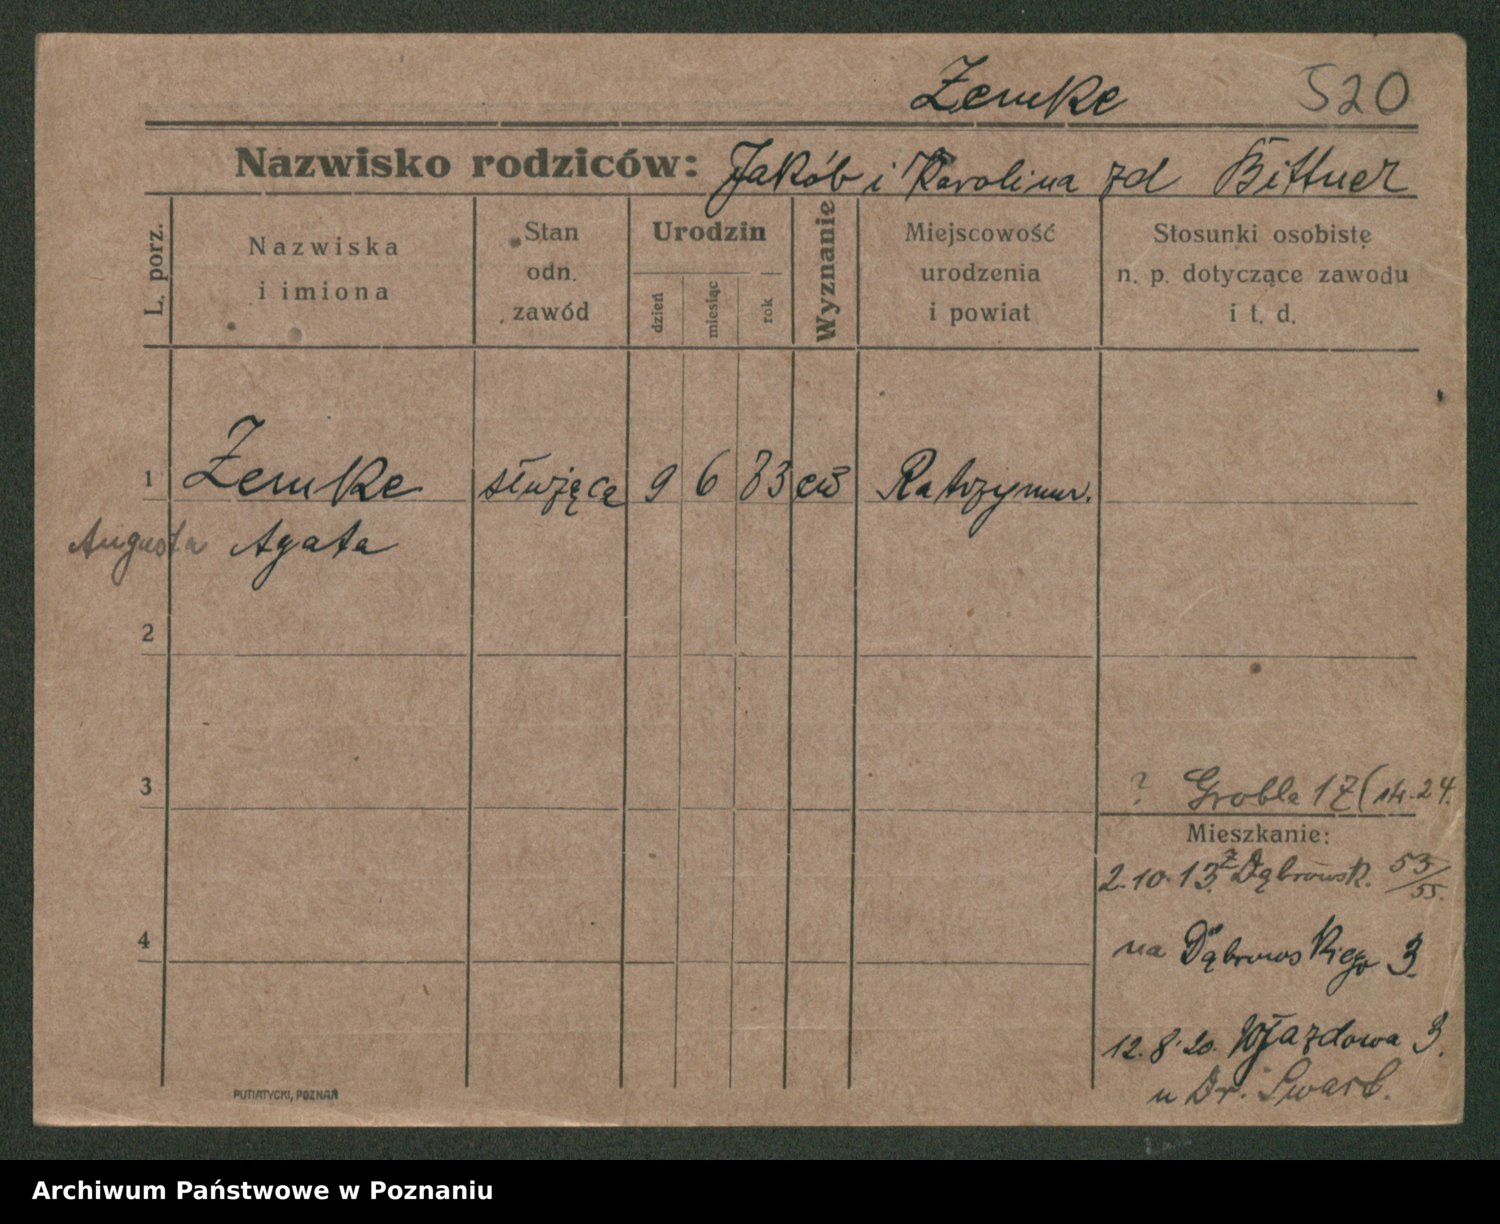 Zemke 520
Nazwisko rodziców: Jakób i Karolina zd Bittner
L. porz.
Nazwiska i imiona
Stan odn. zawód
Urodzin
dzień
miesiąc
rok
Wyznanie
Miejscowość urodzenia i powiat
Stosunki osobiste n. p. dotyczące zawodu i t. d.
1 Zemke służąca 9 6 83 ew
Augusta Agata
2
3
? Grobla 17
Mieszkanie:
2.10.13. z Dąbrowsk. 53/55.
4
na Dąbrowskiego 3.
12.8.20. Wjazdowa 3.
u Dr.
PUTIATYCKI, POZNAŃ
Archiwum Państwowe w Poznaniu